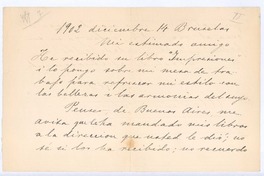 1902 diciembre 14 Bruselas
Mi estimado amigo
He recibido su libro "Impresiones"
i lo pongo sobre mi mesa de tra-
bajo para refrescar mi estilo con
las bellezas i las armonias del suyo.
Penser, de Buenos Aires, me
avisa que le ha mandado mis libros
a la direccion que usted le dió; no
sé si los ha recibido; no recuerdo